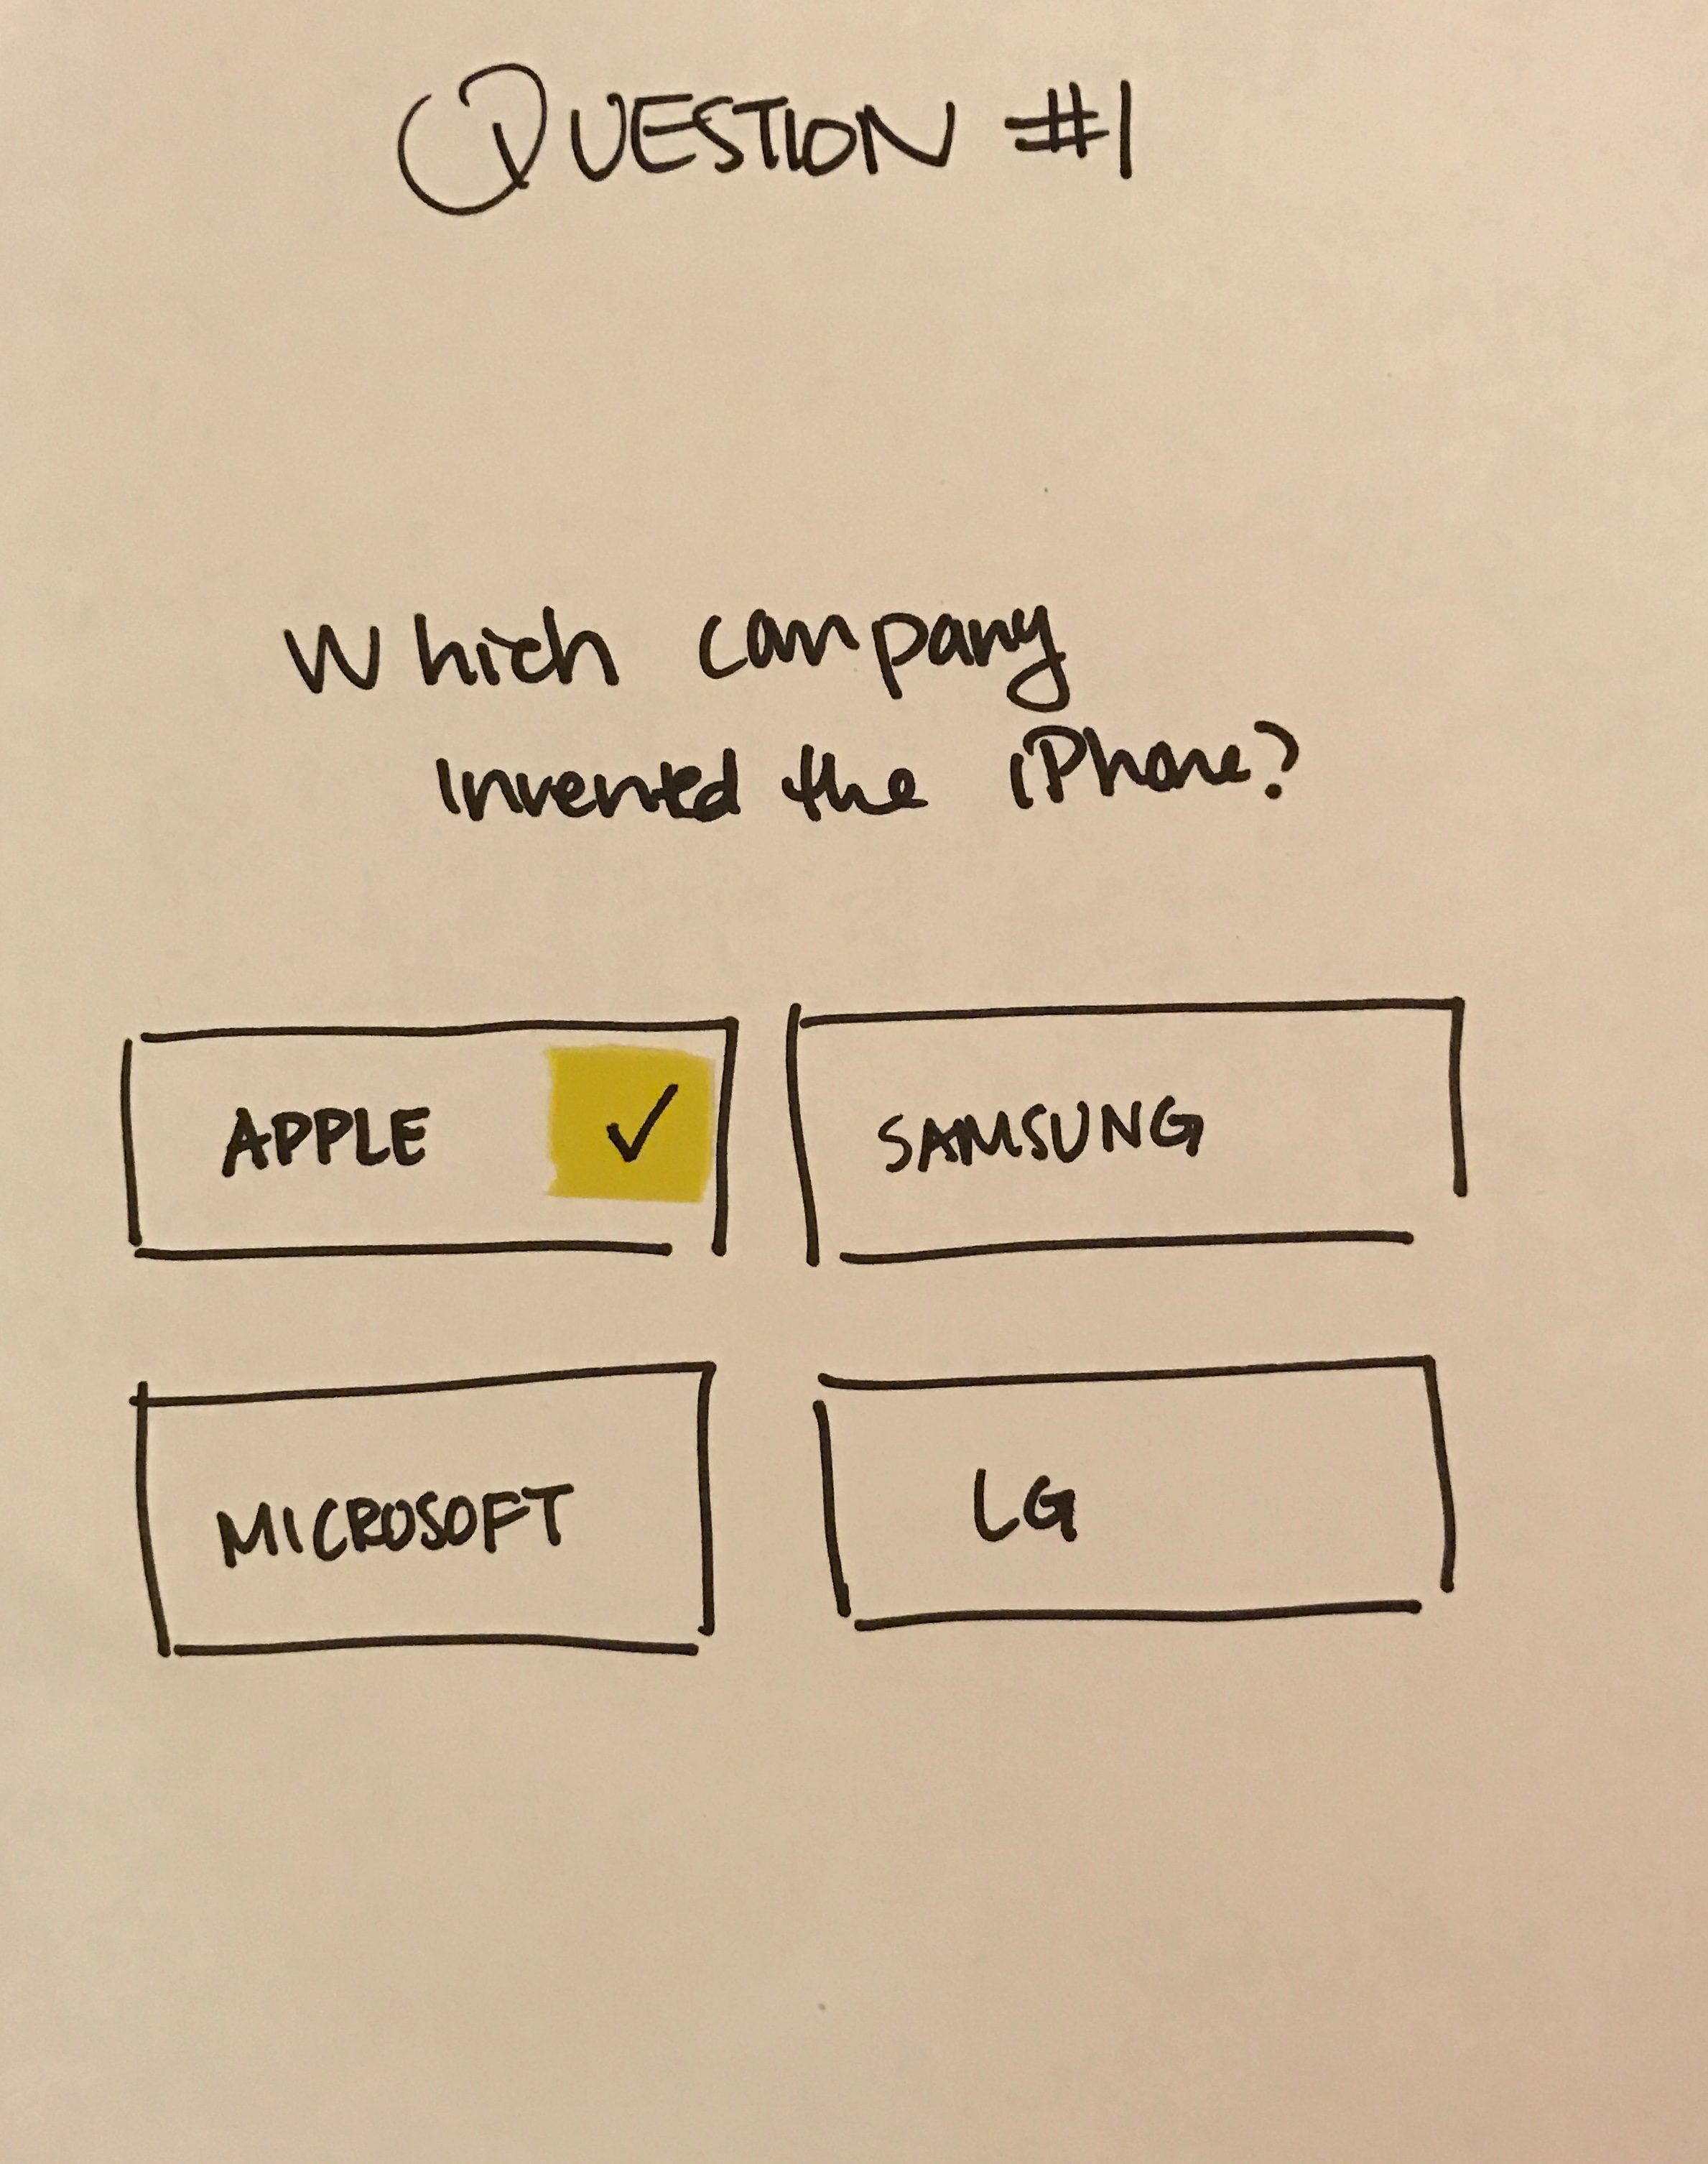 QUESTION #1
Which company
invented the iPhone?
APPLE ✓
SAMSUNG
MICROSOFT
LG